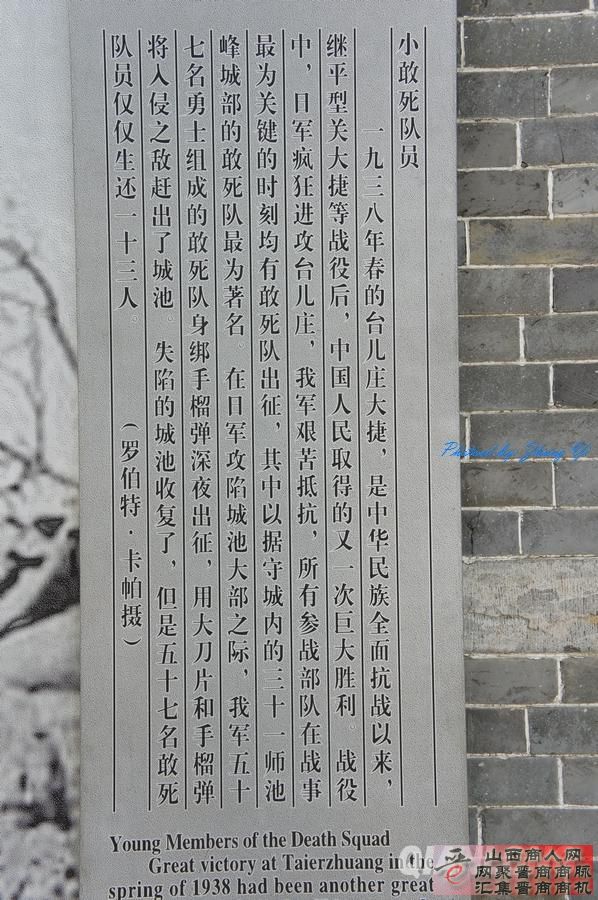 小敢死队员
一九三八年春的台儿庄大捷，是中华民族全面抗战以来，
继平型关大捷等战役后，中国人民取得的又一次巨大胜利。战役
中，日军疯狂进攻台儿庄，我军艰苦抵抗，所有参战部队在战事
最为关键的时刻均有敢死队出征，其中以据守城内的三十一师池
峰城部的敢死队最为著名。在日军攻陷城池大部之际，我军五十
七名勇士组成的敢死队身绑手榴弹深夜出征，用大刀片和手榴弹
将入侵之敌赶出了城池。失陷的城池收复了，但是五十七名敢死
队员仅仅生还一十三人。
（罗伯特·卡帕摄）
Young Members of the Death Squad
Great victory at Taierzhuang in the
spring of 1938 had been another great
Photoed by Zhang Yi
晋
山西商人网
网聚晋商商脉
汇集晋商商机